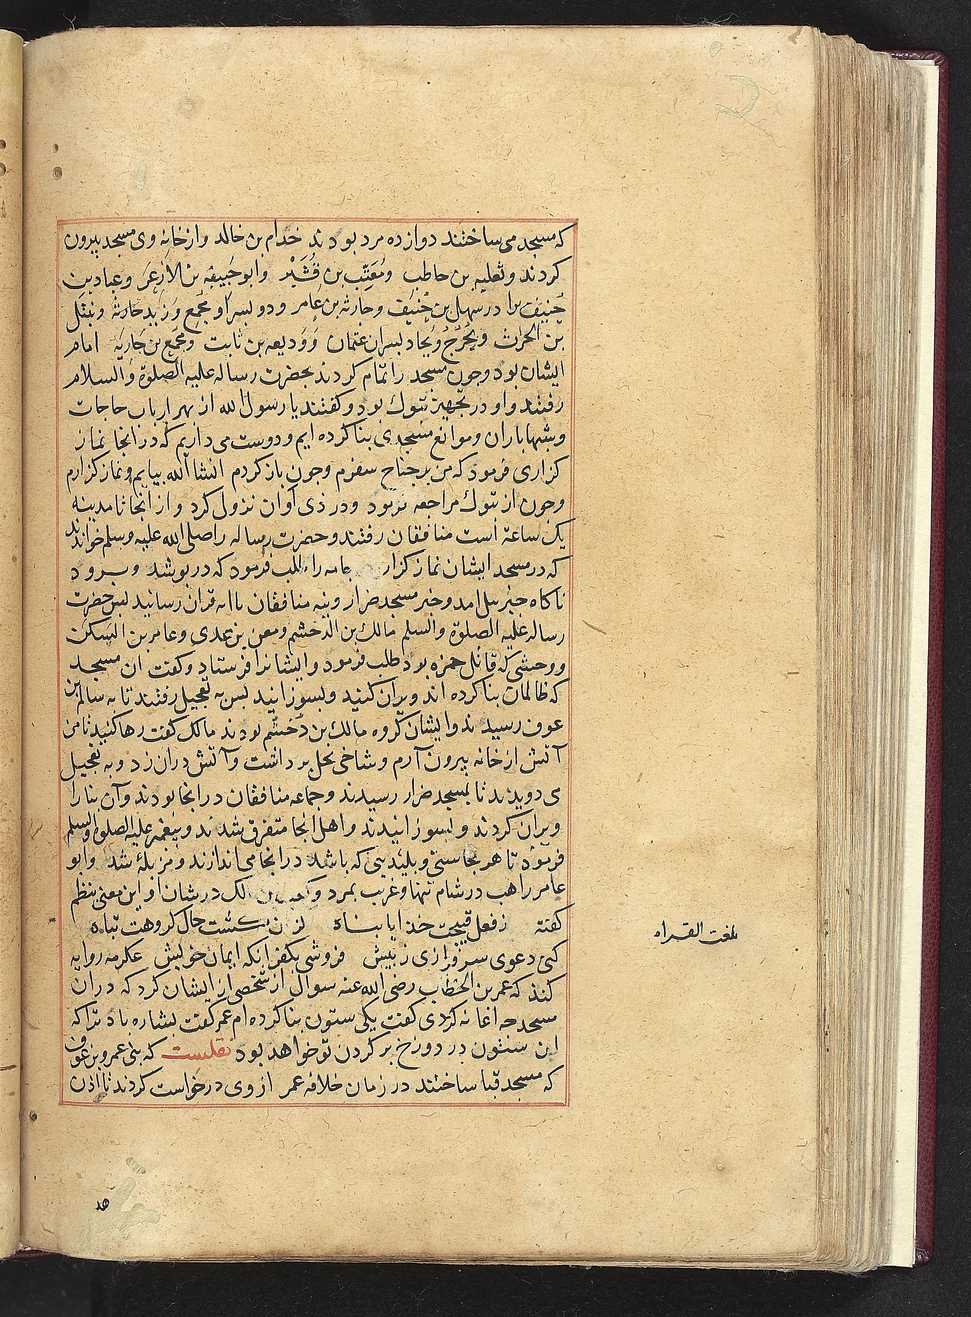 که مسجد می ساختند دوازده مرد بودند خدام بن خالد واز خانهٔ وی مسجد بیرون
کردند و ثعلبه بن حاطب و مُعَتِّب بن قُشَیْر وابو حَبیبه بن الاَزعَر وعباد بن
حُنَیف برادر سهیل بن حُنَیف وجاریه بن عامر و دو پسر او مُجَمّع وَ زَیْد حارثه ونَبْتَل
بن الحرث ویَخْرُج ویجاد بسران عثمان وَوَدیعه بن ثابت ومجَمّع بن جاریَة امام
ایشان بود وجون مسجد را تمام کردند بحضرت رساله علیه الصلوة والسلام
رفتند واو در تجهیز تبوك بود وکفتند یا رسول الله از بهر ارباب حاجات
وشبها باران وموانع مسجدی بنا کرده ایم ودوست می داریم که در انجا نماز
کزاری فرمود که من بر جناح سفرم وجون باز کردم انشاالله بیایم ونماز کزارم
وجون از تبوك مراجعه نمود ودر ذی آوان نزول کرد و از انجا تا مدینه
یك ساعة است منافقان رفتند وحضرت رساله را صلی الله علیه وسلم خواندند
که در مسجد ایشان نماز کزارد جامه را طلب فرمود که در بوشد وبرود
ناکاه جبرییل امد وخبر مسجد ضرار ونیه منافقان باایه قران رسانید بس حضرت
رساله علیه الصلوة والسلم مالك بن الدخشم ومعن بن عدی وعامر بن السَکَن
ووحشی که قاتل حمزه بود طلب فرمود وایشانرا فرستاد وکفت ان مسجد
که ظالمان بنا کرده اند ویران کنید وبسوزانید بس به تعجیل رفتند تا به سالم بن
عوف رسیدند وایشان کروه مالك بن دُخشم بودند مالك کفت رها کنید تا من
آتش از خانه بیرون آرم وشاخی نخل برداشت وآتش دران زد وبه تعجیل
می دویدند تا بمسجد ضرار رسیدند وجماعه منافقان در انجا بودند وآن بنا را
ویران کردند وبسوزانیدند واهل انجا متفرق شدند وبیغمبر علیه الصلوة والسلم
فرمود تا هر نجاستی وبلیدیی که باشد در انجا می اندازند ومزبلهٔ شد وابو
عامر راهب در شام تنها وغریب بمرد وکعب بن مالك در شان او این معنی بنظم
کفته زفعل قبیحت خدایا بناه کزان کشت حال کروهت تباه
کنی دعوی سرفرازی زبیش فروشی بکفر انکه ایمان خویش عکرمه روایه
کند که عمر بن الخطاب رضی الله عنه سوال از شخصی از ایشان کرد که دران
مسجد چه اعانه کردی کفت یکی ستون بنا کرده ام عمر کفت بشاره باد تراکه
این ستون در دوزخ بر کردن تو خواهد بود نقلست که بنی عمرو بن عوف
که مسجد قبا ساختند در زمان خلافه عمر از وی درخواست کردند تا اذن
بلغت القراه
هد